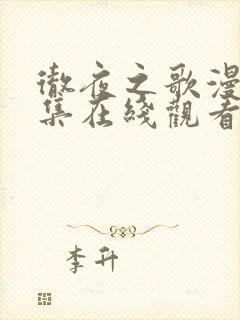 徹夜之歌漫
集在綫觀看
李升